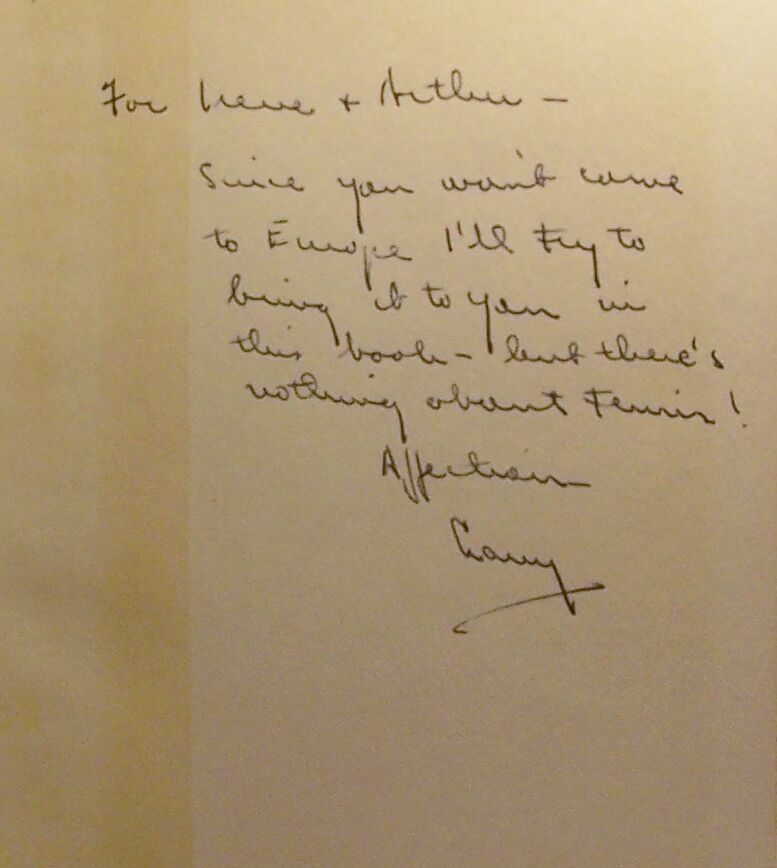 For Irene + Arthur —
Since you won't come
to Europe I'll try to
bring it to you in
this book — but there's
nothing about Tennis!
Affection